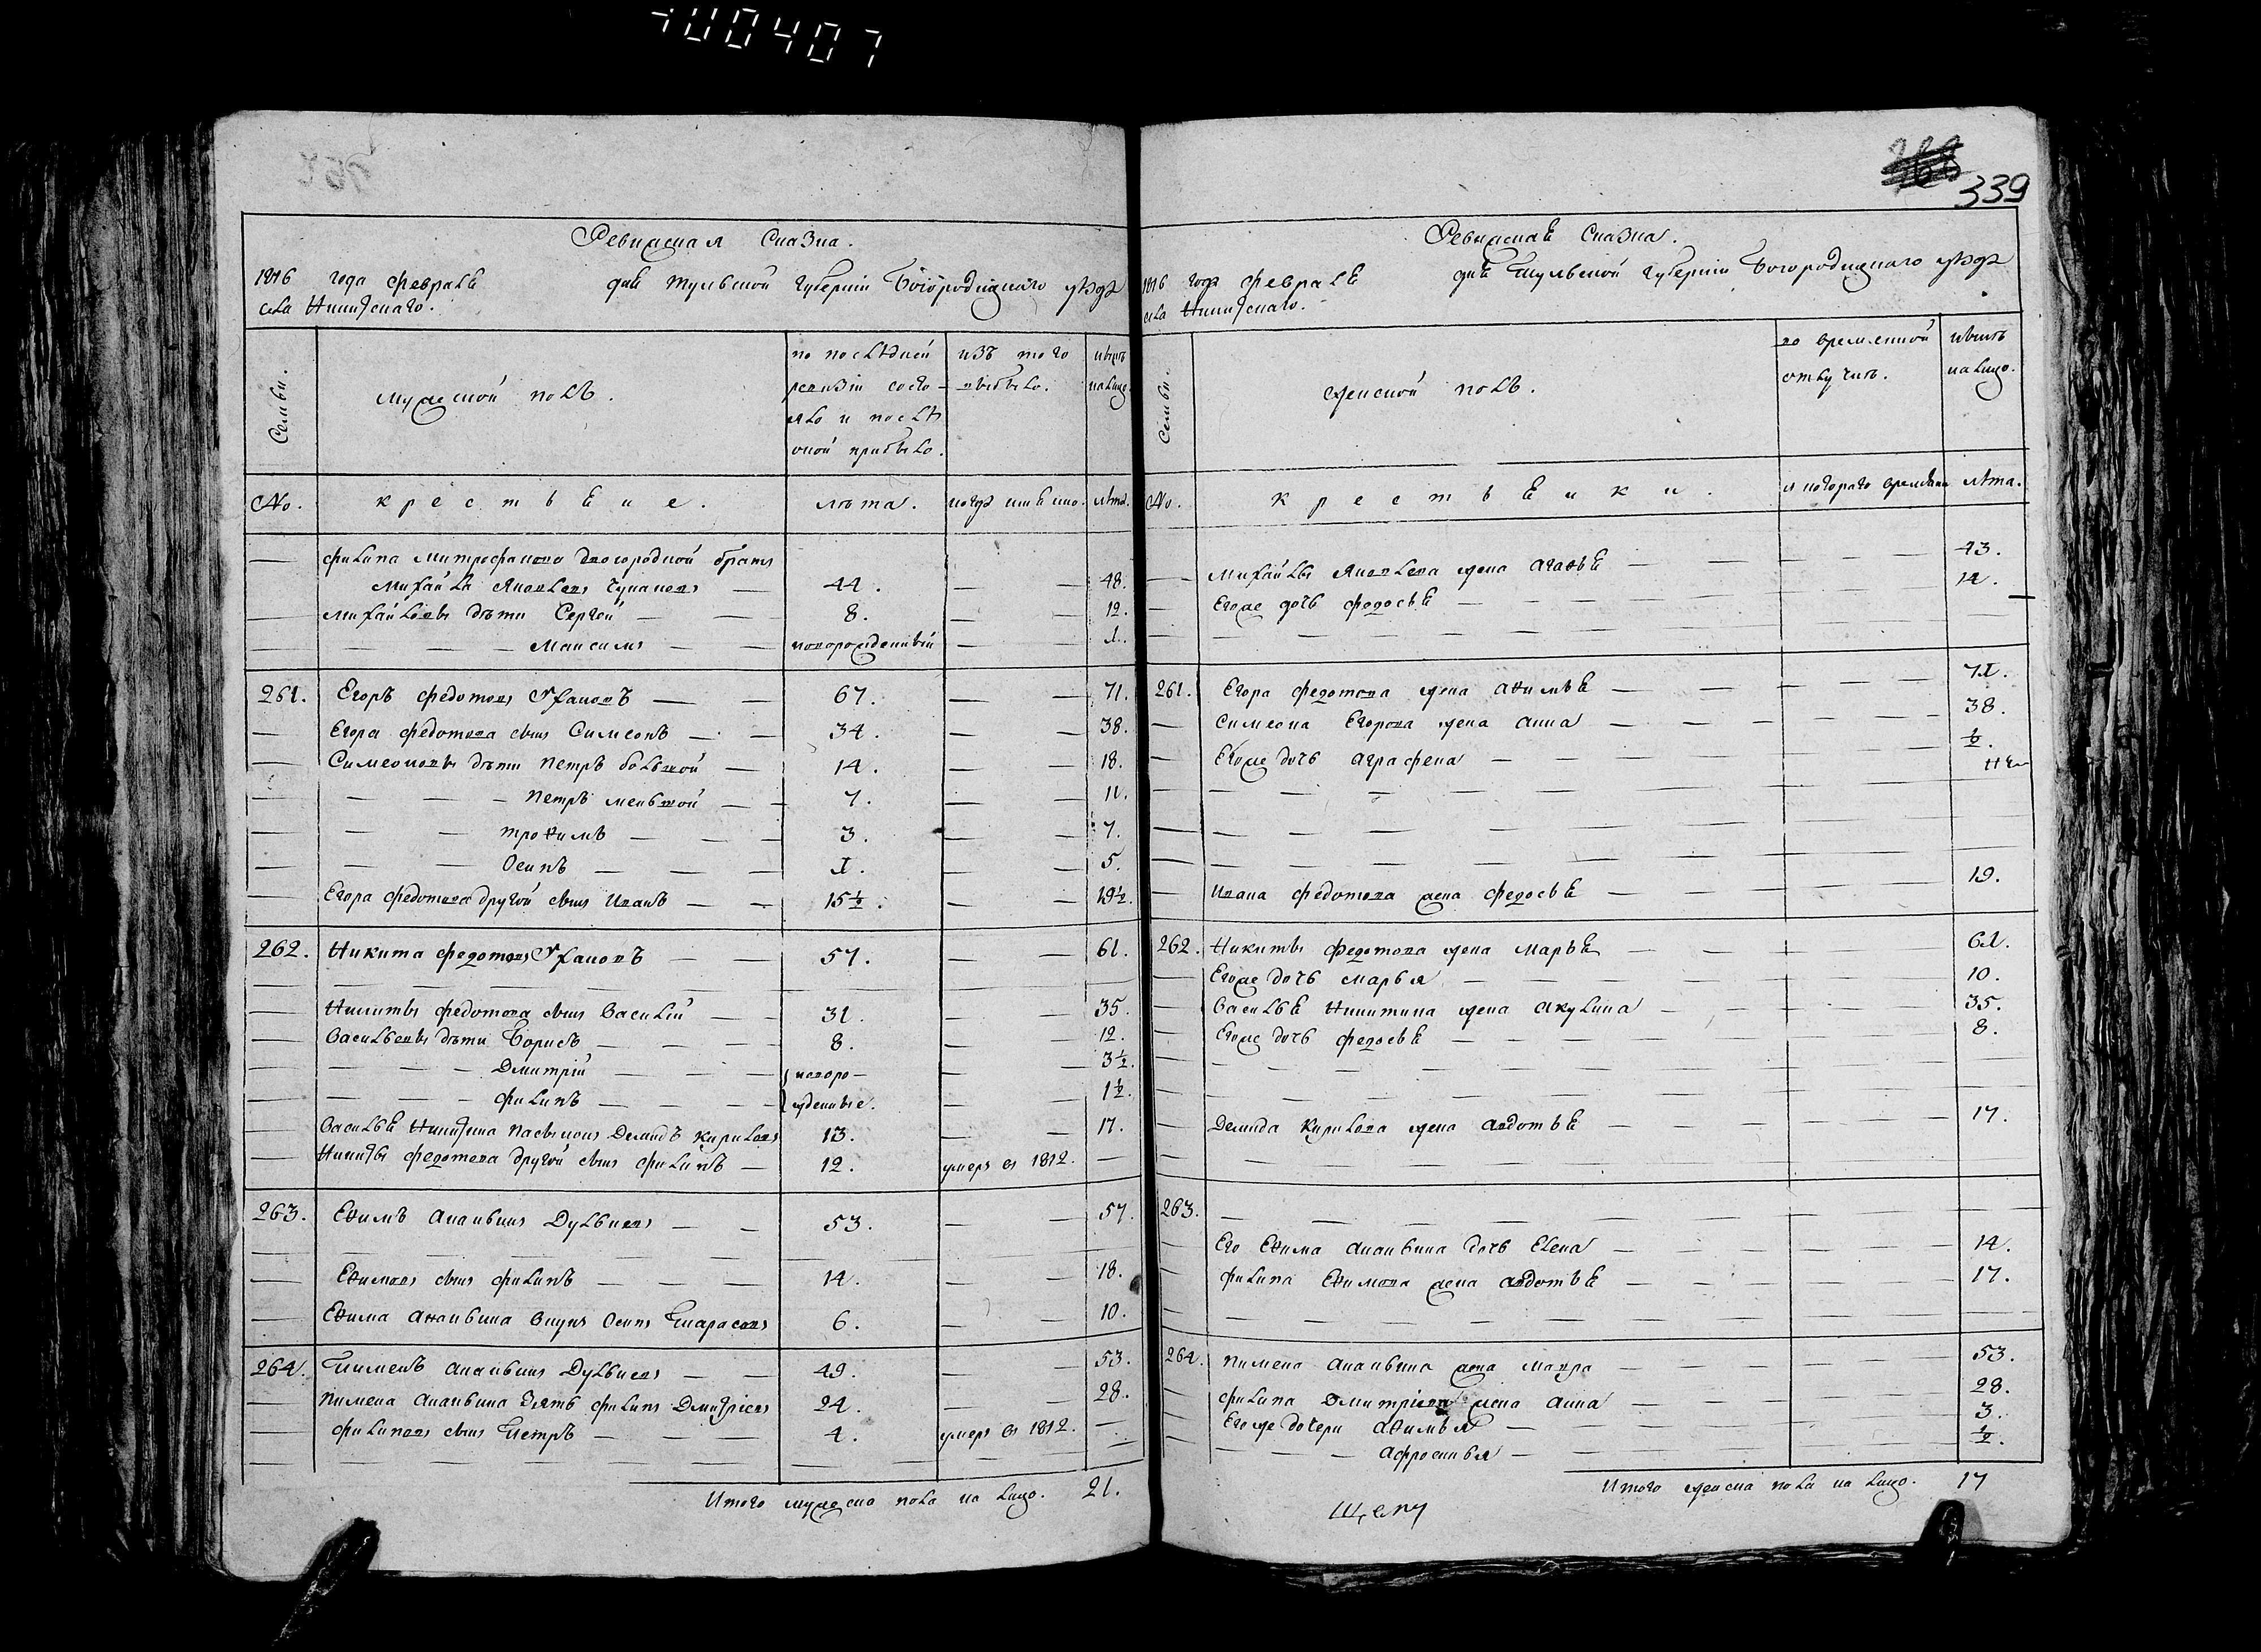 400407
339
Ревизская Сказка.
1816 года февраля дня Тульской губернии Богородицкаго уезда
села Никитскаго.
Семьи.
мужеской полъ.
по последней
ревизіи состо-
яло и после
оной прибыло.
изъ того
выбыло.
ныне
на лицо.
No.
крестьяне.
лѣта.
когда имянно.
лѣта.
филипа митрофанова двоюродной братъ
михайла Яковлевъ Чукановъ 44. 48.
михайловы дѣти Сергей 8. 12.
Максимъ новорожденный 1.
261. Егоръ федотовъ 67. 71.
Егора федотова сынъ Симеонъ 34. 38.
Симеоновы дѣти Петръ большой 14. 18.
Петръ меньшой 7. 11.
троѳимъ 3. 7.
Осипъ 1. 5.
Егора федотова другой сынъ Иванъ 15½. 19½.
262. Никита федотовъ 57. 61.
Никиты федотова сынъ Василій 31. 35.
Васильевы дѣти Борисъ 8. 12.
Дмитрій новоро- 3½.
филипъ жденные. 1½.
Василья Никитина пасынокъ Демидъ кириловъ 13. 17.
Никиты федотова другой сынъ филипъ 12. умеръ въ 1812.
263. Еѳимъ ананьинъ 53. 57.
Еѳимовъ сынъ филипъ 14. 18.
Еѳима ананьина внукъ Осипъ Тарасовъ 6. 10.
264. Пименъ ананьинъ 49. 53.
Пимена ананьина зять филипъ Дмитріевъ 24. 28.
филиповъ сынъ Петръ 4. умеръ въ 1812.
Итого мужеска пола на лицо. 21.
Ревизская Сказка.
1816 года февраля дня Тульской губерніи Богородицкаго уезда
села Никитскаго.
Семьи.
женской полъ.
во временной
отлучкѣ.
ныне
на лицо.
No.
крестьянки.
съ котораго времени
лѣта.
михайлы Яковлева жена агаѳья 43.
Егоже дочь федосья 14.
261. Егора федотова жена аѳимья 71.
Симеона Егорова жена анна 38.
Егоже дочь аграфена ½.
Ивана федотова жена федосья 19.
262. Никиты федотова жена марья 61.
Егоже дочь марья 10.
Василья Никитина жена акулина 35.
Егоже дочь федосья 8.
Демида кирилова жена авдотья 17.
263.
Его Еѳима ананьина дочь Елена 14.
филипа Еѳимова жена авдотья 17.
264. Пимена ананьина жена мавра 53.
филипа Дмитріева жена анна 28.
Егоже дочери аѳимья 3.
афросинья ½.
Итого женска пола на лицо. 17